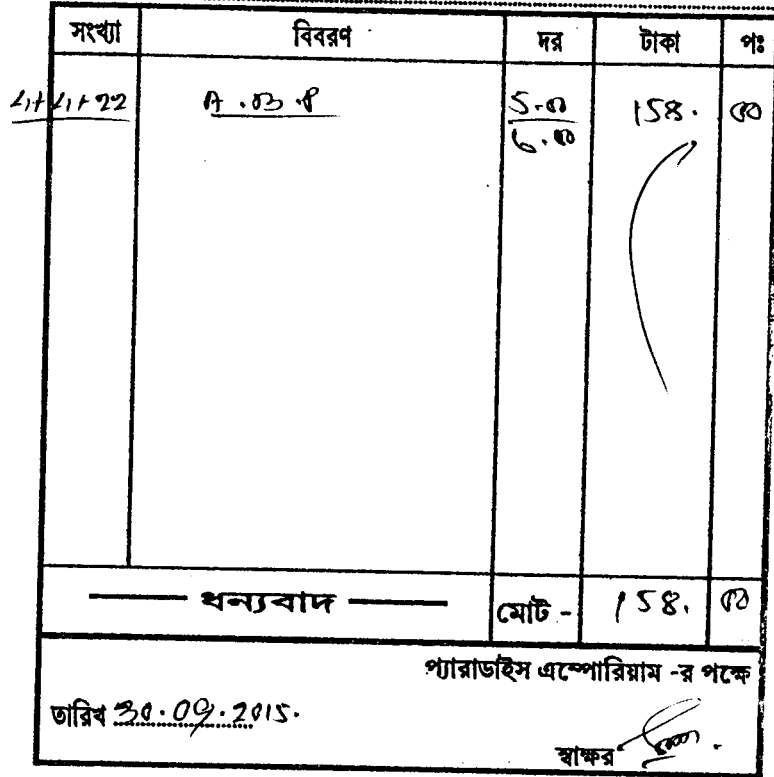 সংখ্যা বিবরণ দর টাকা পঃ
4+4+22 A.B.P 5.00 158. 00
6.00
ধন্যবাদ মোট - 158. 00
প্যারাডাইস এম্পোরিয়াম -র পক্ষে
তারিখ 30.09.2015.
স্বাক্ষর